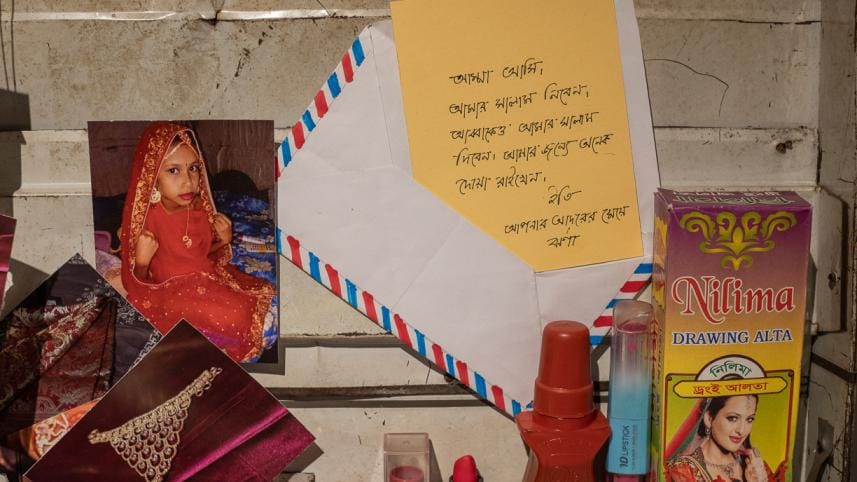 আম্মা আমি,
আমার সালাম নিবেন,
আব্বাকেও আমার সালাম
দিবেন। আমার জন্যে অনেক
দোয়া রাইখেন,
ইতি
আপনার আদরের মেয়ে
ঝর্ণা
Nilima
DRAWING ALTA
নিলিমা
ড্রইং আলতা
LIPSTICK